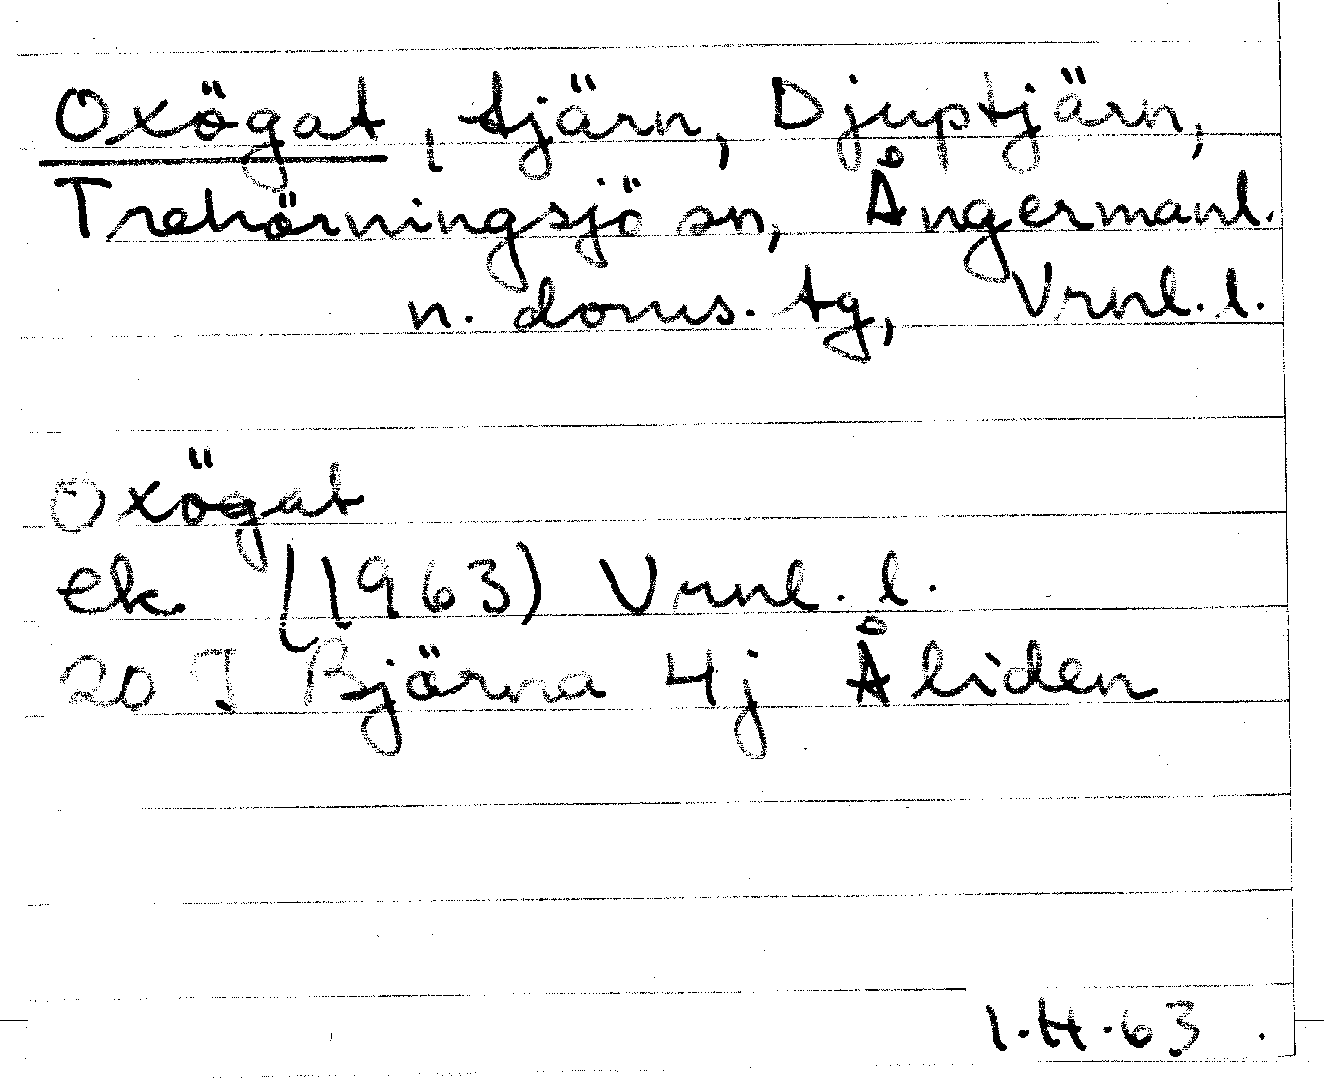 Oxögat, tjärn, Djuptjärn,
Trehörningsjö sn, Ångermanl.
n. doms. tg, Vrnl. l.
Oxögat
ek. (1963) Vrnl. l.
20 I Björna 4j Åliden
1.H.63.